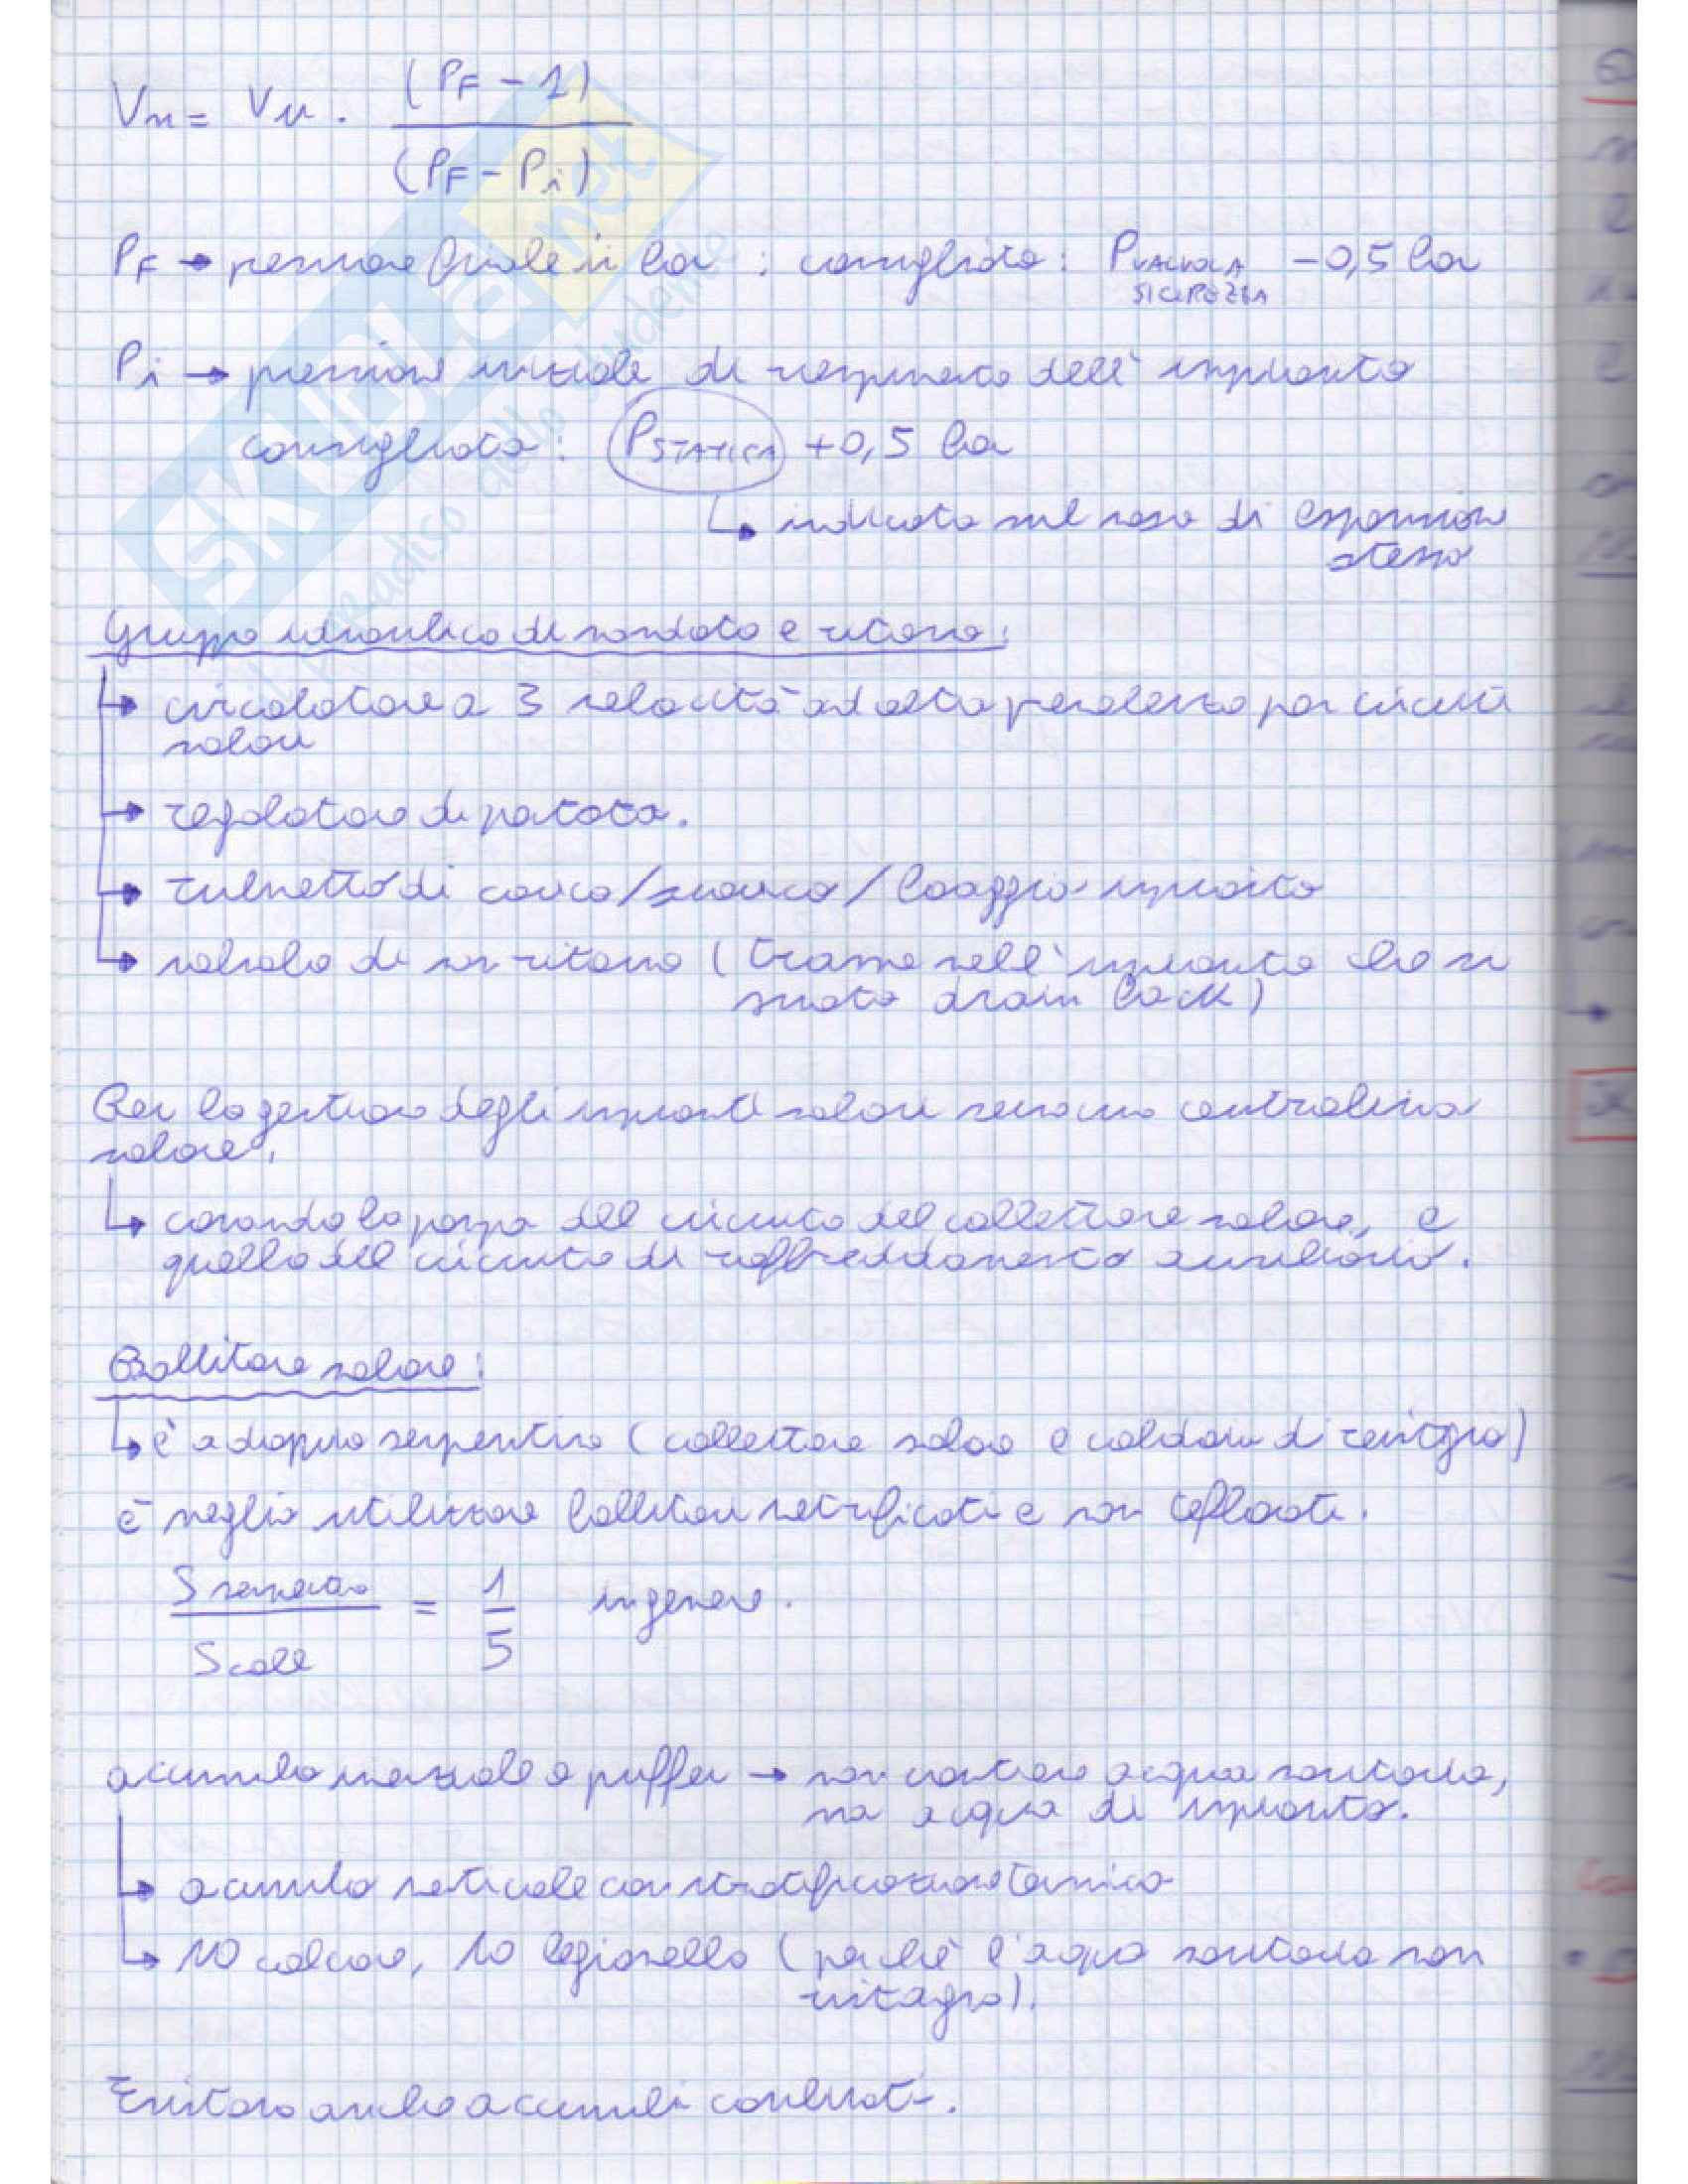 Vn = Vu · (PF - 1)
(PF - Pi)
PF → pressione finale in bar ; consigliato : PVALVOLA SICUREZZA - 0,5 bar
Pi → pressione iniziale di riempimento dell'impianto
consigliata : PSTATICA + 0,5 bar
↳ indicata sul vaso di espansione
stesso
Gruppo idraulico di mandata e ritorno :
→ circolatore a 3 velocità ad alta prevalenza per circuiti
solari
→ regolatore di portata.
→ rubinetto di carico / scarico / lavaggio impianto
→ valvola di non ritorno ( tranne nell'impianto che si
svuota drain back )
Per la gestione degli impianti solari serve una centralina
solare.
↳ comanda la pompa del circuito del collettore solare, e
quella del circuito di raffreddamento ausiliario.
Bollitore solare :
↳ è a doppio serpentino ( collettore solare e caldaia di reintegro )
è meglio utilizzare bollitori vetrificati e non teflonati.
S serpentino = 1 in genere.
S coll 5
accumulo inerziale o puffer → non contiene acqua sanitaria,
ma acqua di impianto.
→ accumulo verticale con stratificazione termica
→ NO calcare, NO legionella ( perché l'acqua sanitaria non
ristagna ).
Esistono anche accumuli combinati.
SKUOLA.net
il paradiso dello studente